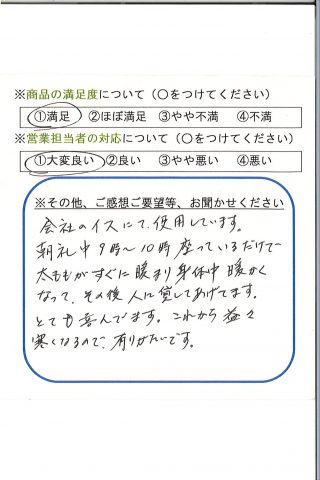 ※商品の満足度について（○をつけてください）
①満足 ②ほぼ満足 ③やや不満 ④不満
※営業担当者の対応について（○をつけてください）
①大変良い ②良い ③やや悪い ④悪い
※その他、ご感想ご要望等、お聞かせください
会社のイスにて、使用しています。
朝礼中9時〜10時座っているだけで
太ももがすぐに暖まり身体中暖かく
なって、その後人に貸してあげてます。
とても喜んでます。これから益々
寒くなるので、有りがたいです。